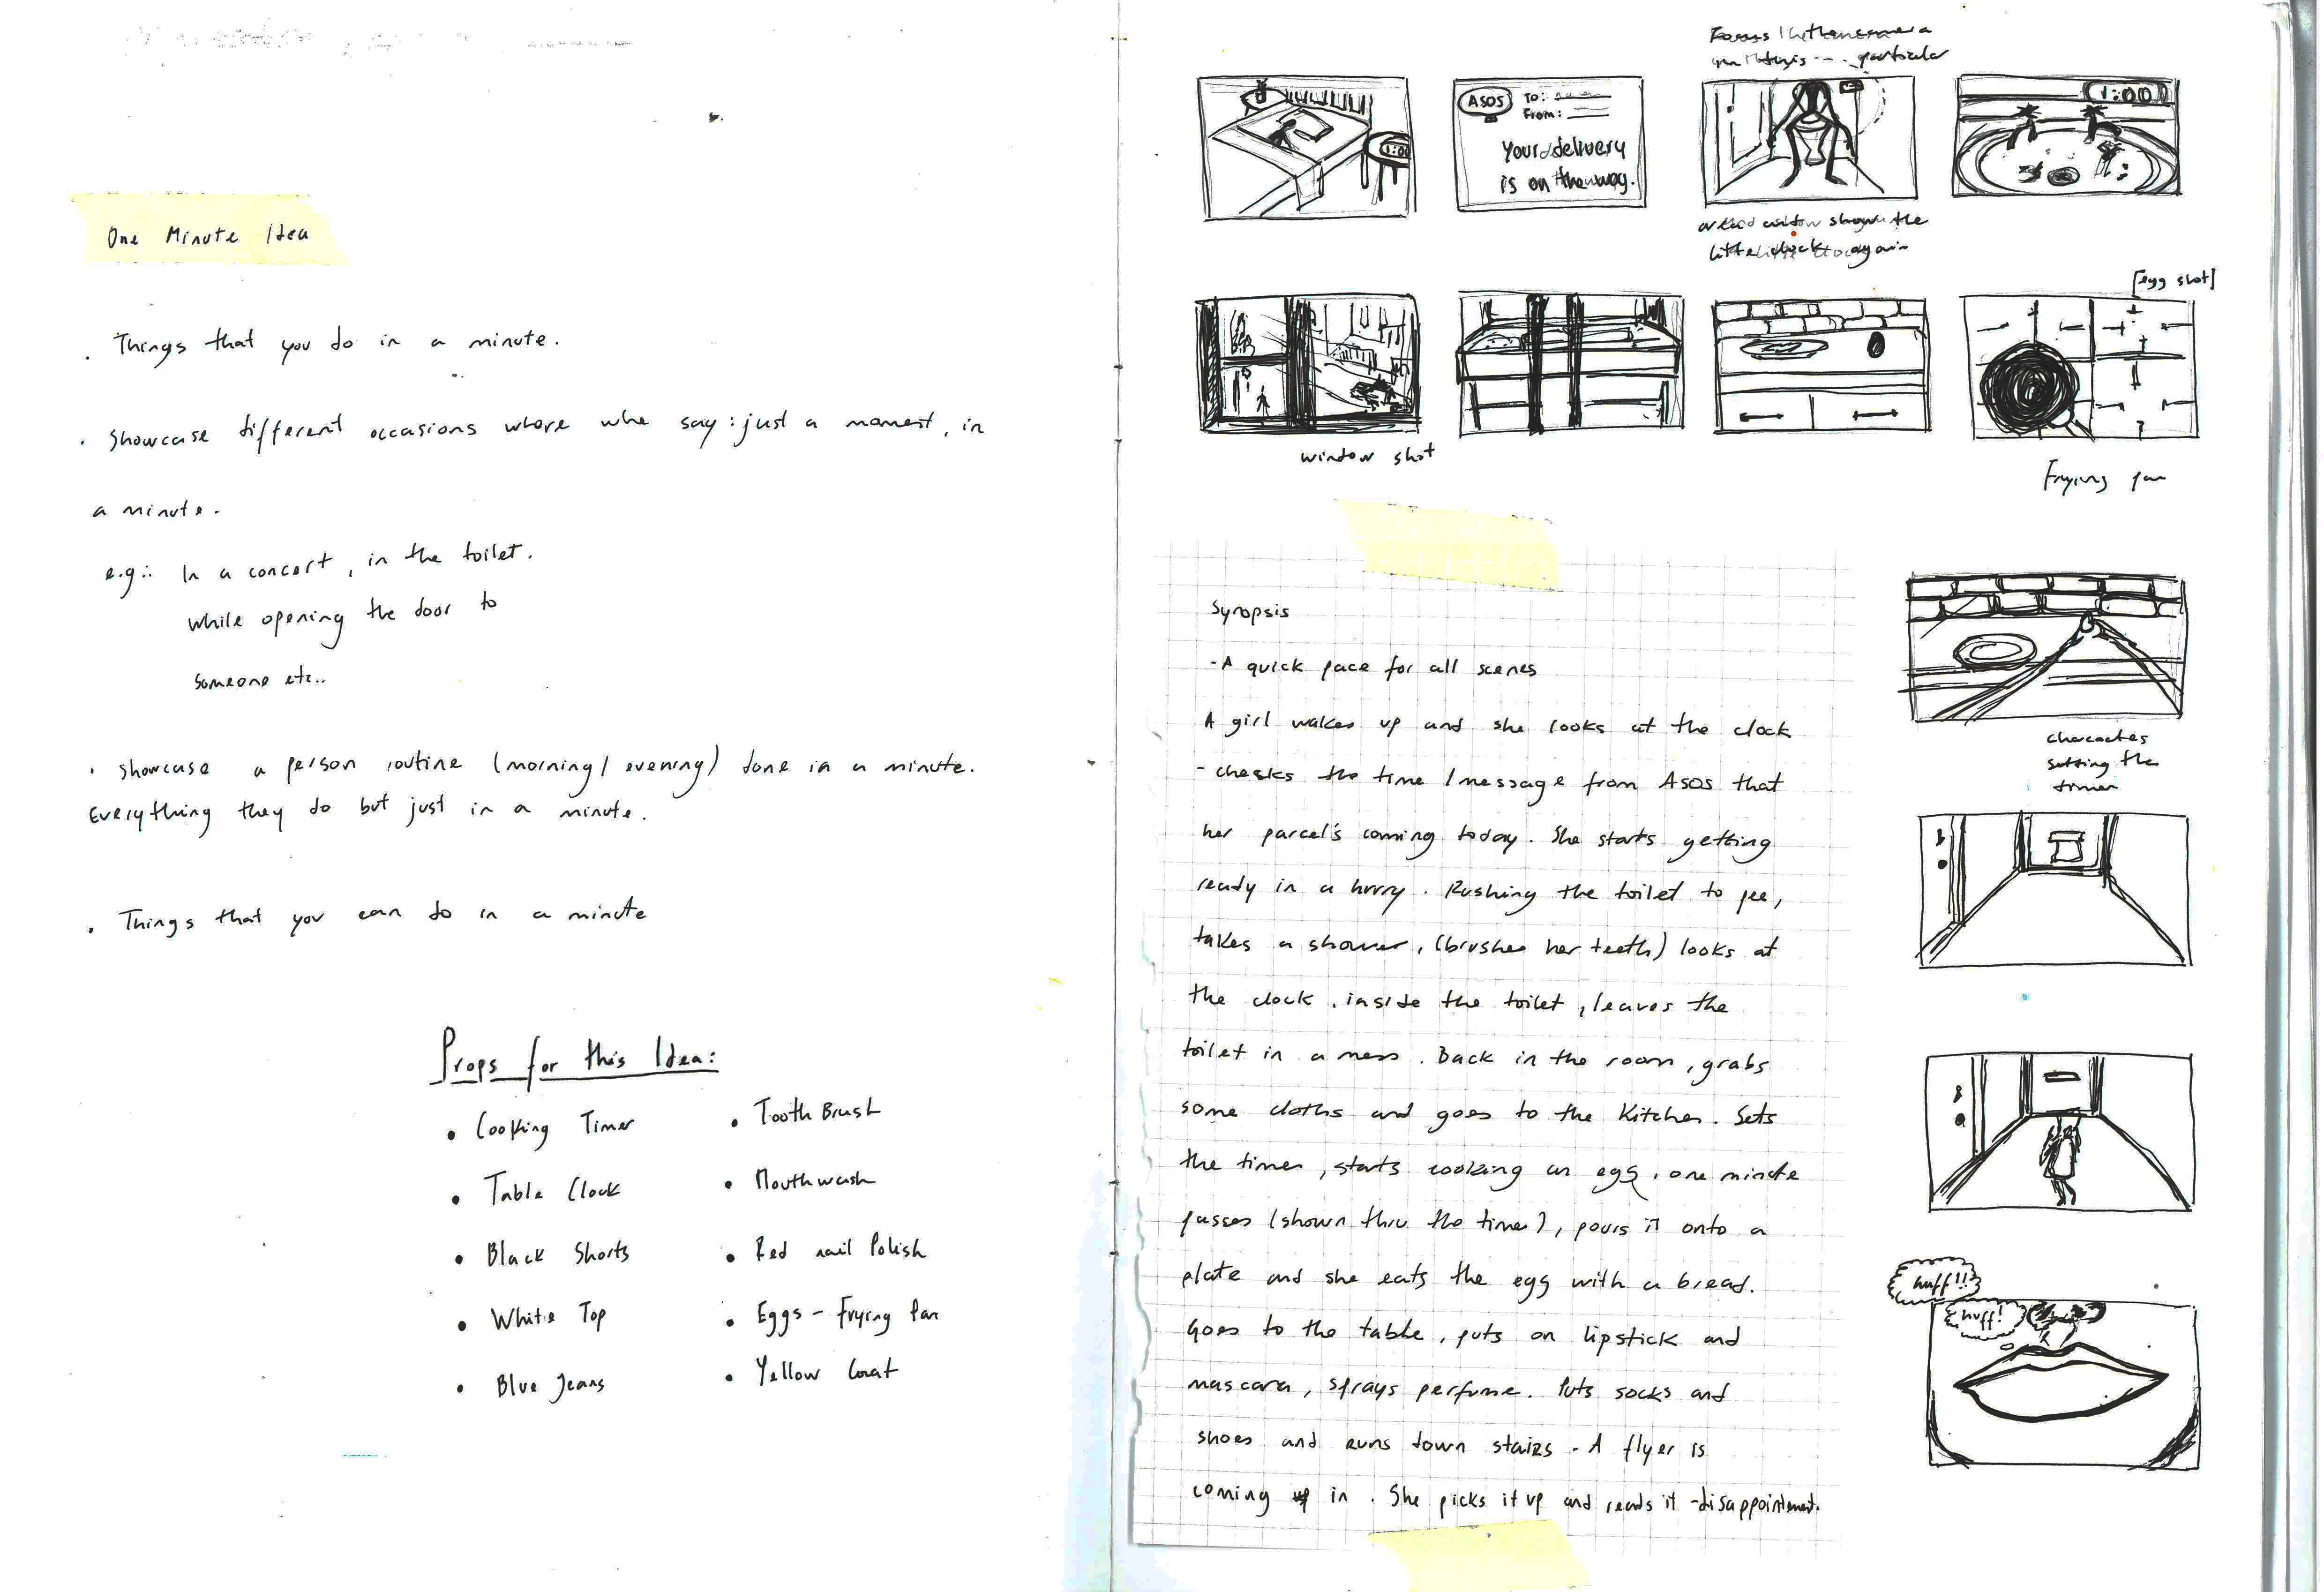 One Minute Idea
. Things that you do in a minute.
. Showcase different occasions where whe say: just a moment, in
a minute.
e.g:. In a concert, in the toilet.
while opening the door to
someone etc..
. Showcase a person routine (morning/evening) done in a minute.
Everything they do but just in a minute.
. Things that you can do in a minute
Props for this Idea:
• Cooking Timer
• Table Clock
• Black Shorts
• White Top
• Blue Jeans
• Tooth Brush
• Mouthwash
• Red nail Polish
• Eggs - Frying Pan
• Yellow Coat
particular
1:00
ASOS To:
From:
Your delivery
is on the way.
1:00
show the
little clock again
window shot
[egg shot]
Frying pan
Synopsis
- A quick pace for all scenes
A girl wakes up and she looks at the clock
- checks the time /message from ASOS that
her parcel's coming today. She starts getting
ready in a hurry. Rushing the toilet to pee,
takes a shower, (brushes her teeth) looks at
the clock. inside the toilet, leaves the
toilet in a mess. Back in the room, grabs
some cloths and goes to the kitchen. Sets
the timer, starts cooking an egg. one minute
passes (shown thru the timer), pours it onto a
plate and she eats the egg with a bread.
Goes to the table, puts on lipstick and
mascara, sprays perfume. Puts socks and
shoes and runs down stairs - A flyer is
coming in. She picks it up and reads it - disappointment.
setting the
timer
huff!!
huff!